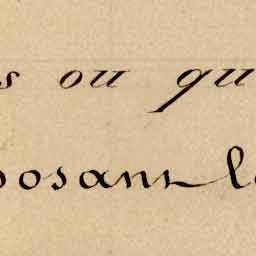 s ou qu
posant le